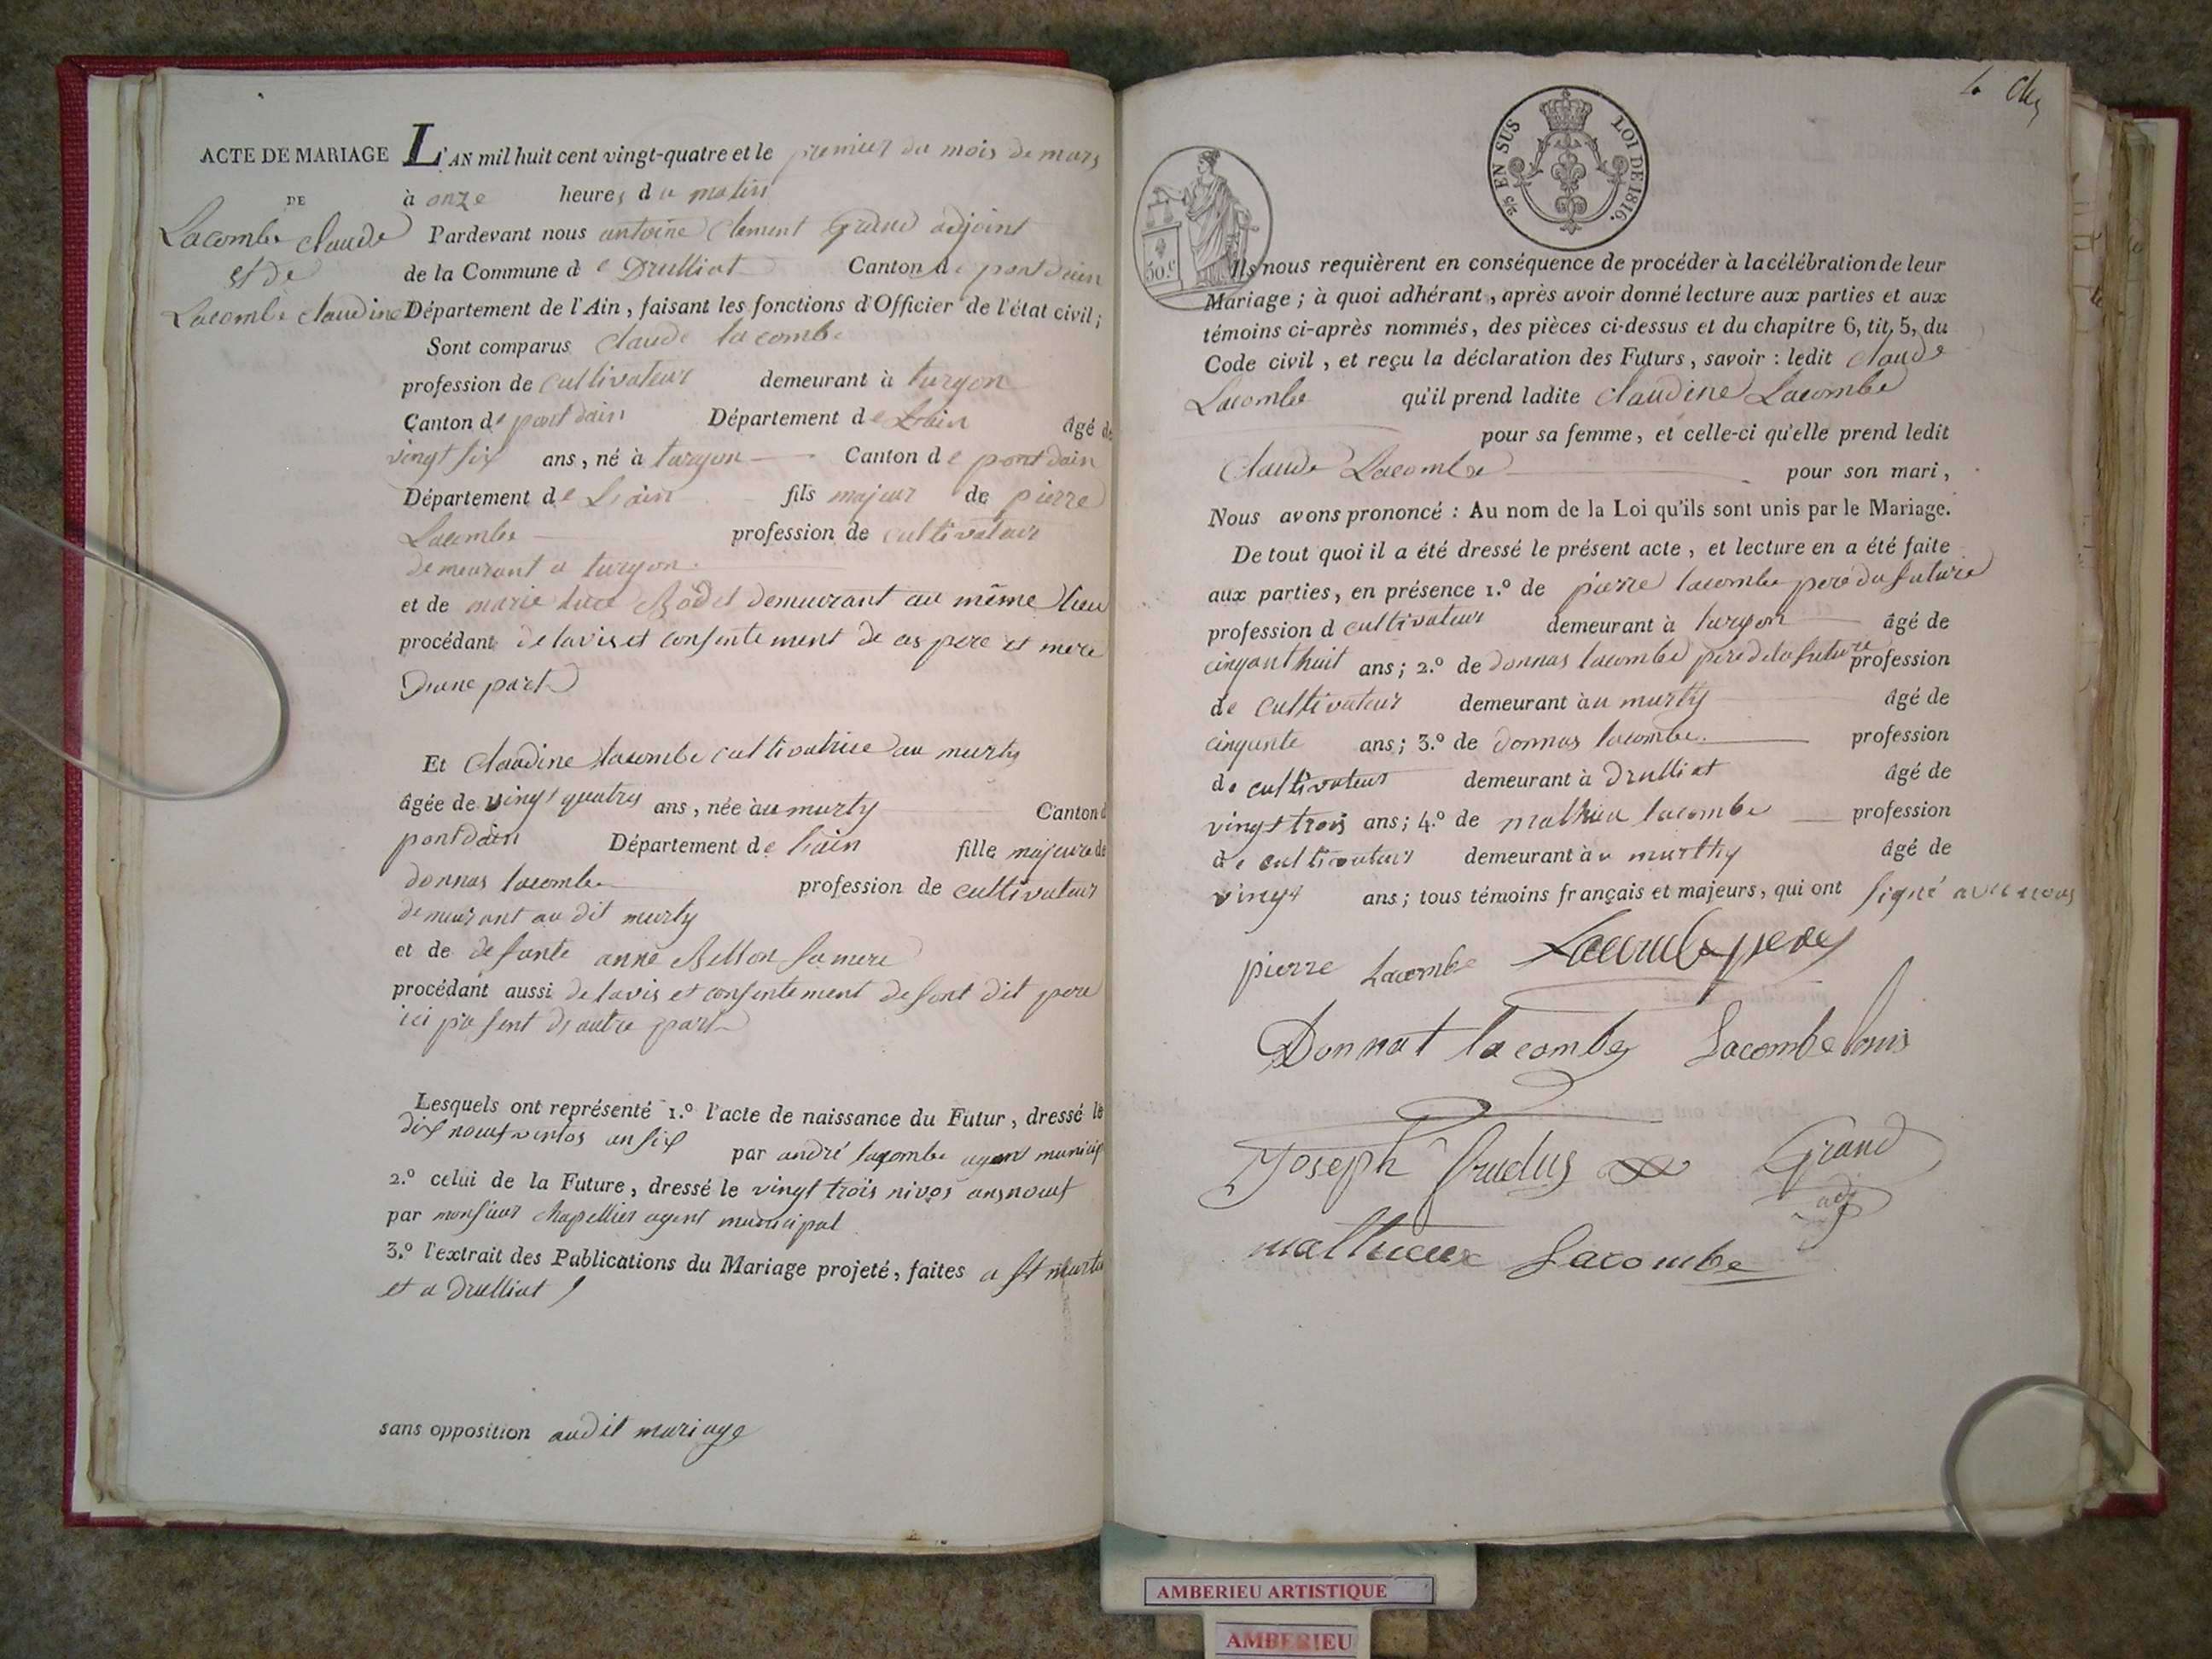 ACTE DE MARIAGE
DE
Lacombe claude
et de
Lacombe claudine
L'AN mil huit cent vingt-quatre et le premier du mois de mars
à onze heures du matin
Pardevant nous antoine Clement Grand adjoint
de la Commune de Drulliat Canton de pont dain
Département de l'Ain, faisant les fonctions d'Officier de l'état civil;
Sont comparus claude lacombe
profession de cultivateur demeurant à turgon
Canton de pont dain Département de Lain âgé de
vingt six ans, né à turgon Canton de pont dain
Département de Lain fils majeur de pierre
Lacombe profession de cultivateur
demeurant a turgon.
et de marie luce Bodet demeurant au même lieu
procédant de lavis et consentement de ces pere et mere
Dune part
Et Claudine lacombe cultivatrice au murty
âgée de vingt quatre ans, née au murty Canton d
pont dain Département de Lain fille majeure de
donnas lacombe profession de cultivateur
demeurant au dit murty
et de defunte anne Billon sa mere
procédant aussi de lavis et consentement de sont dit pere
ici présent dautre part
Lesquels ont représenté 1.º l'acte de naissance du Futur, dressé le
dix neuf ventos an six par andré lacombe agent municip
2.º celui de la Future, dressé le vingt trois nivos an neuf
par monsieur chapellier agent municipal
3.º l'extrait des Publications du Mariage projeté, faites a St martin
et a Drulliat
sans opposition audit mariage
5/c EN SUS LOI DE 1816.
50.c
Ils nous requièrent en conséquence de procéder à la célébration de leur
Mariage; à quoi adhérant, après avoir donné lecture aux parties et aux
témoins ci-après nommés, des pièces ci-dessus et du chapitre 6, tit. 5, du
Code civil, et reçu la déclaration des Futurs, savoir: ledit claude
Lacombe qu'il prend ladite claudine Lacombe
pour sa femme, et celle-ci qu'elle prend ledit
Claude Lacombe pour son mari,
Nous avons prononcé: Au nom de la Loi qu'ils sont unis par le Mariage.
De tout quoi il a été dressé le présent acte, et lecture en a été faite
aux parties, en présence 1.º de pierre lacombe pere du future
profession d cultivateur demeurant à turgon âgé de
cinquant huit ans; 2.º de donnas lacombe pere de la future profession
de cultivateur demeurant au murty âgé de
cinquante ans; 3.º de donnas lacombe. profession
de cultivateur demeurant à Drulliat âgé de
vingt trois ans; 4.º de mathieu lacombe profession
de cultivateur demeurant àu murthy âgé de
vingt ans; tous témoins français et majeurs, qui ont signé avec nous
pierre Lacombe Lacombe pere
Donnat lacombe Lacombe louis
Joseph Grand
adj
mathieux Lacombe
AMBERIEU ARTISTIQUE
AMBERIEU